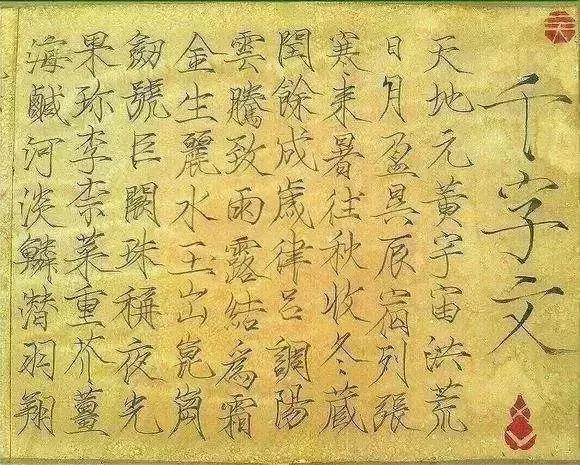 千字文
天地元黃宇宙洪荒
日月盈昃辰宿列張
寒来暑往秋收冬藏
閏餘成歲律呂調陽
雲騰致雨露結爲霜
金生麗水玉出崑崗
劒號巨闕珠稱夜光
果珎李柰菜重芥薑
海鹹河淡鱗潛羽翔